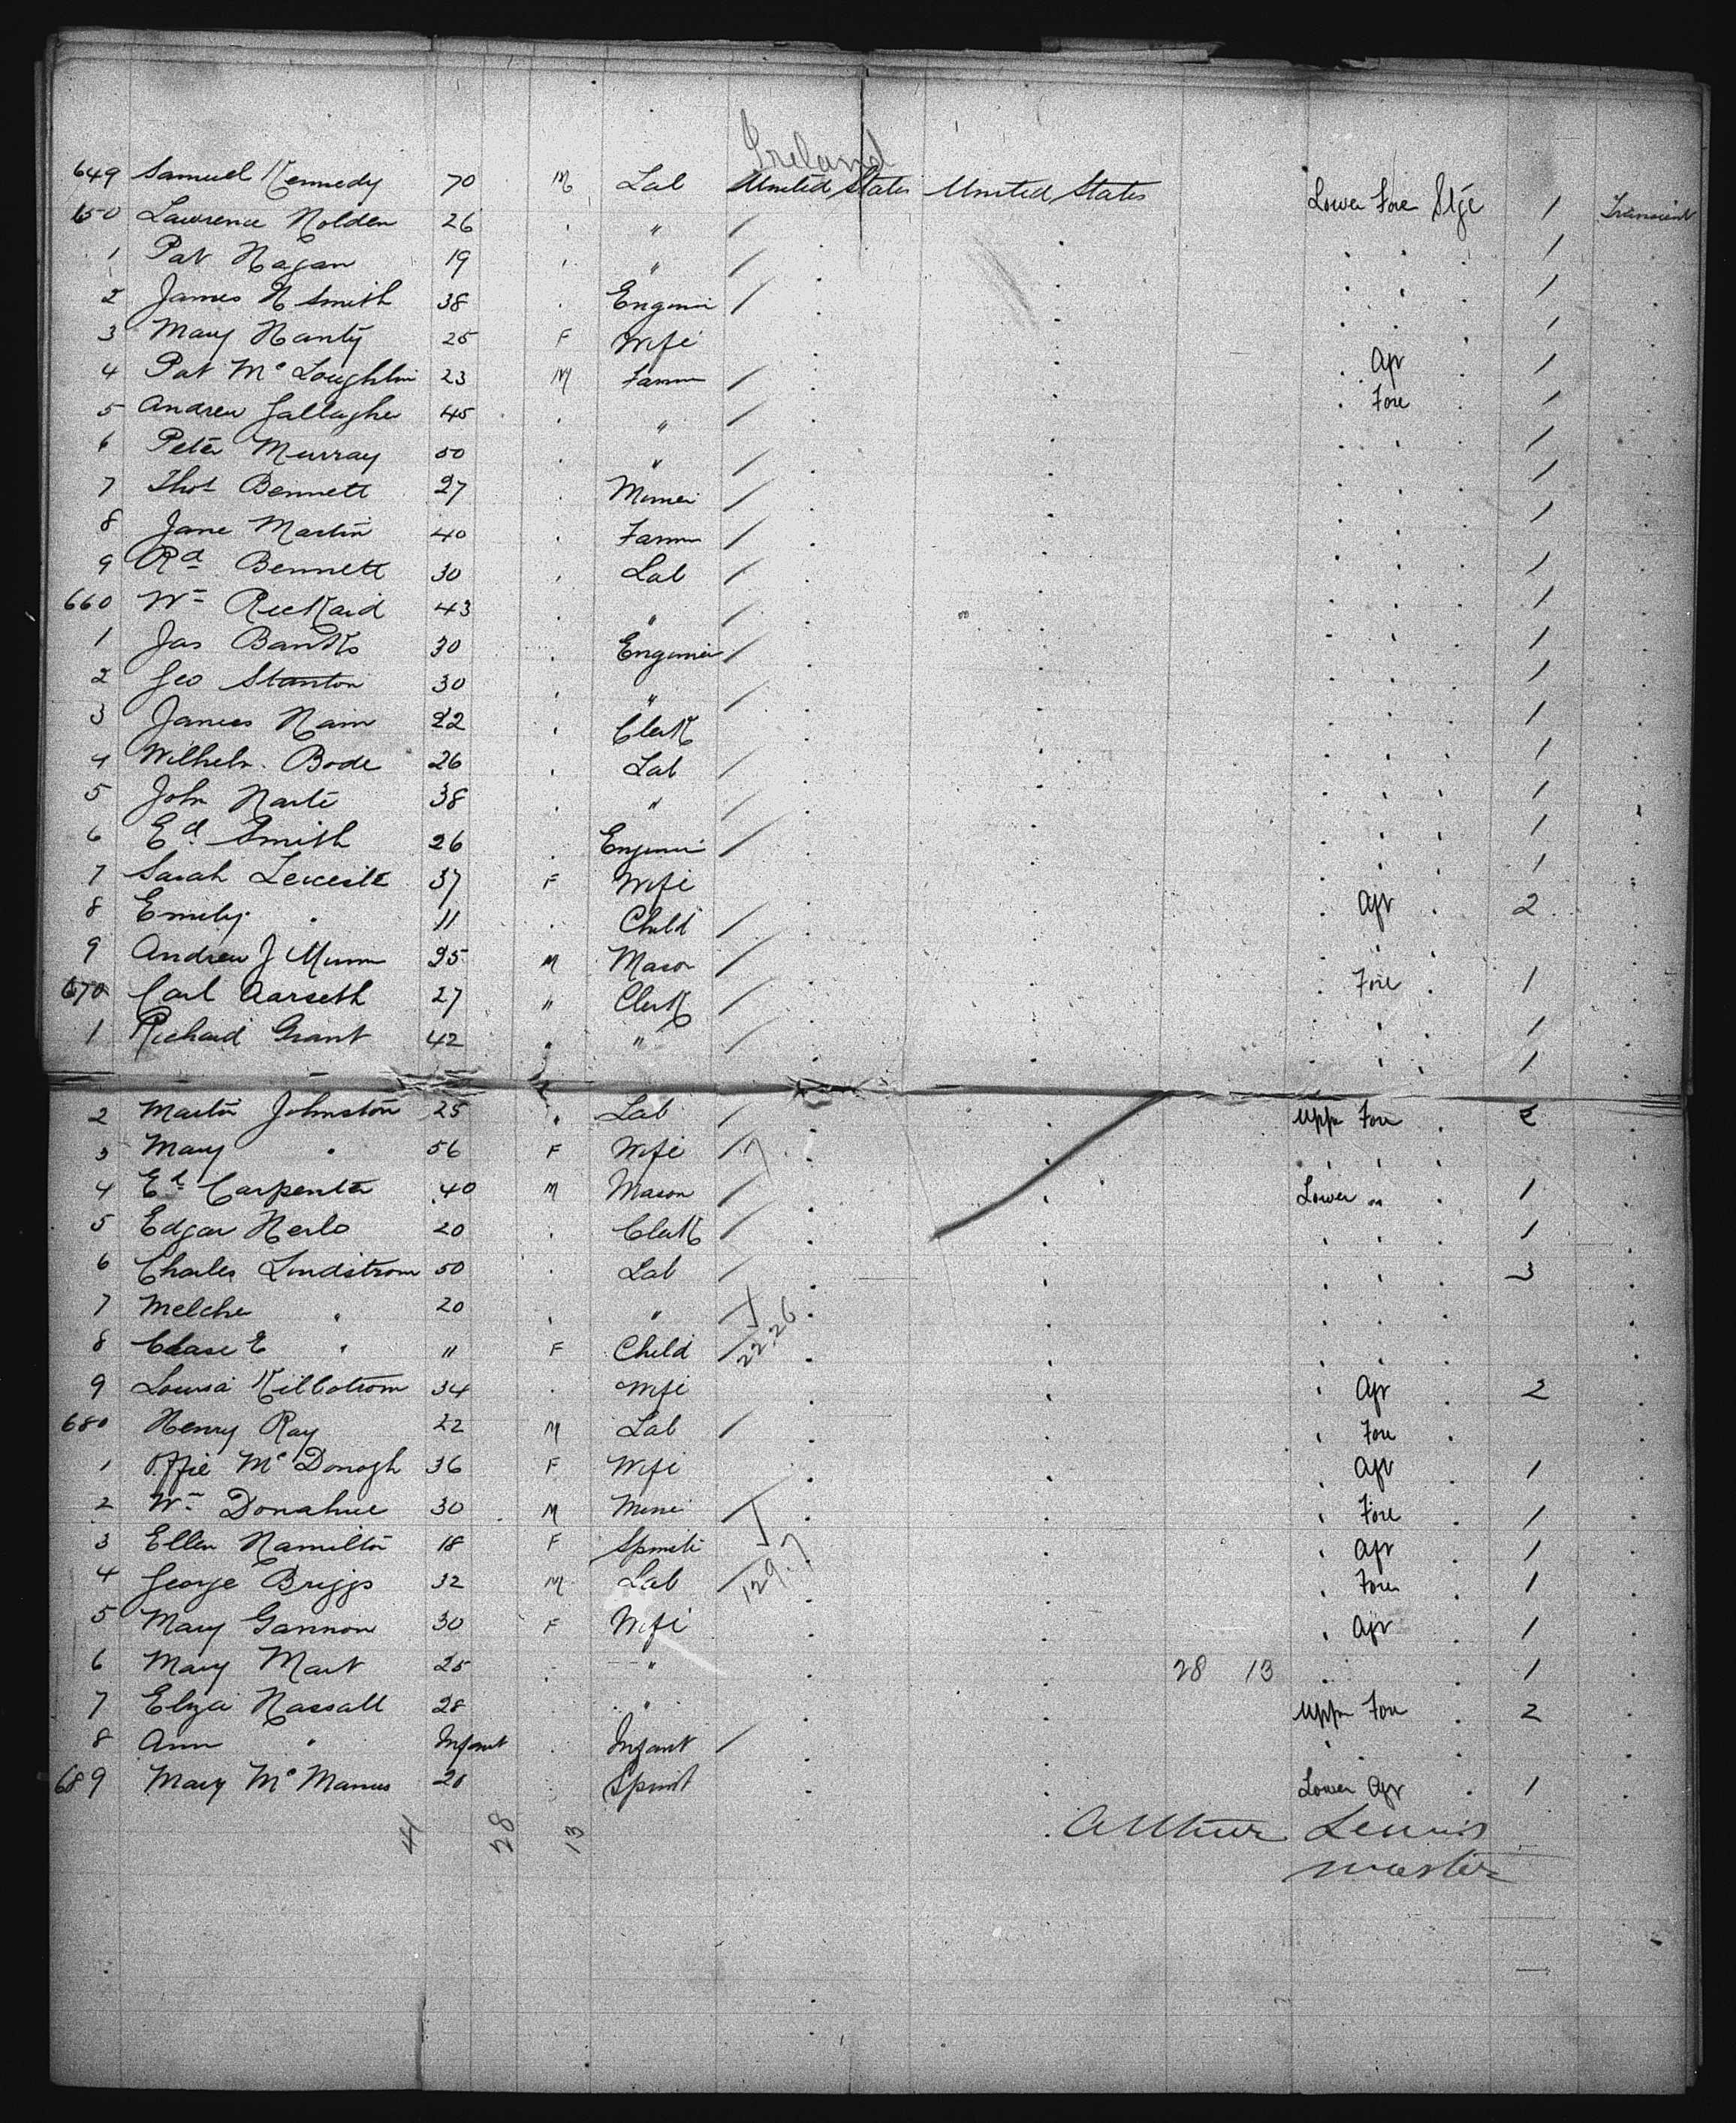 Ireland
649 Samuel Kennedy 70 M Lab United States United States Lower Fore Stge 1 Transient
650 Lawrence Holden 26 " /  1
1 Pat Hagan 19 " / 1
2 James H Smith 38 Engineer / 1
3 Mary Hanty 25 F Wife Aft 1
4 Pat Mc Loughlin 23 M Farmer / Fore 1
5 Andrew Gallagher 45 " / 1
6 Peter Murray 50 " / 1
7 Thos Bennett 27 Miner / 1
8 Jane Martin 40 Farmer / 1
9 Rd Bennett 30 Lab / 1
660 Wm Rickard 43 " / 1
1 Jas Banks 30 Engineer / 1
2 Geo Stanton 30 " / 1
3 James Nain 22 Clerk 1
4 Wilhelm Bode 26 Lab / 1
5 John Harte 38 " / 1
6 Ed Smith 26 Engineer / 1
7 Sarah Leicester 37 F Wife Aft 2
8 Emily " 11 Child /
9 Andrew J Munn 25 M Mason / Fore 1
670 Carl Aarseth 27 " Clerk / 1
1 Richard Grant 42 " " / 1
2 Martin Johnston 25 " Lab / Uppr Fore 2
3 Mary " 56 F Wife /
4 Ed Carpenter 40 M Mason / Lower " 1
5 Edgar Herlo 20 Clerk / 1
6 Charles Lindstrom 50 Lab / 3
7 Melcher " 20 " /
8 Clase E " 11 F Child / 22.26
9 Louisa Killstrom 34 Wife Aft 2
680 Henry Ray 22 M Lab / Fore
1 Mc Donogh 36 F Wife Aft 1
2 Wm Donahue 30 M Miner / Fore 1
3 Ellen Hamilton 18 F Spinster Aft 1
4 George Briggs 32 M Lab / 129.7 Fore 1
5 Mary Gannon 30 F Wife Aft 1
6 Mary Mart 25 " 28 13 1
7 Eliza Hassall 28 " Uppr Fore 2
8 Ann " Infant Infant /
689 Mary Mc Manus 20 Spinst Lower Aft 1
41 28 13
Arthur Lewis
master